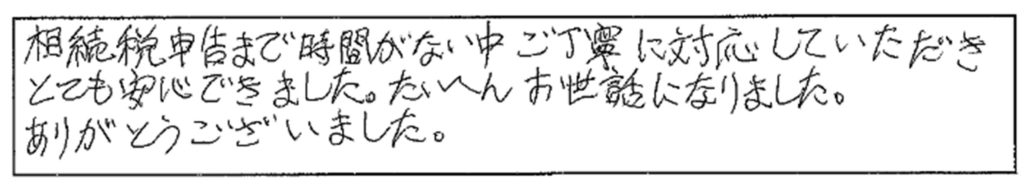 相続税申告まで時間がない中ご丁寧に対応していただき
とても安心できました。たいへんお世話になりました。
ありがとうございました。